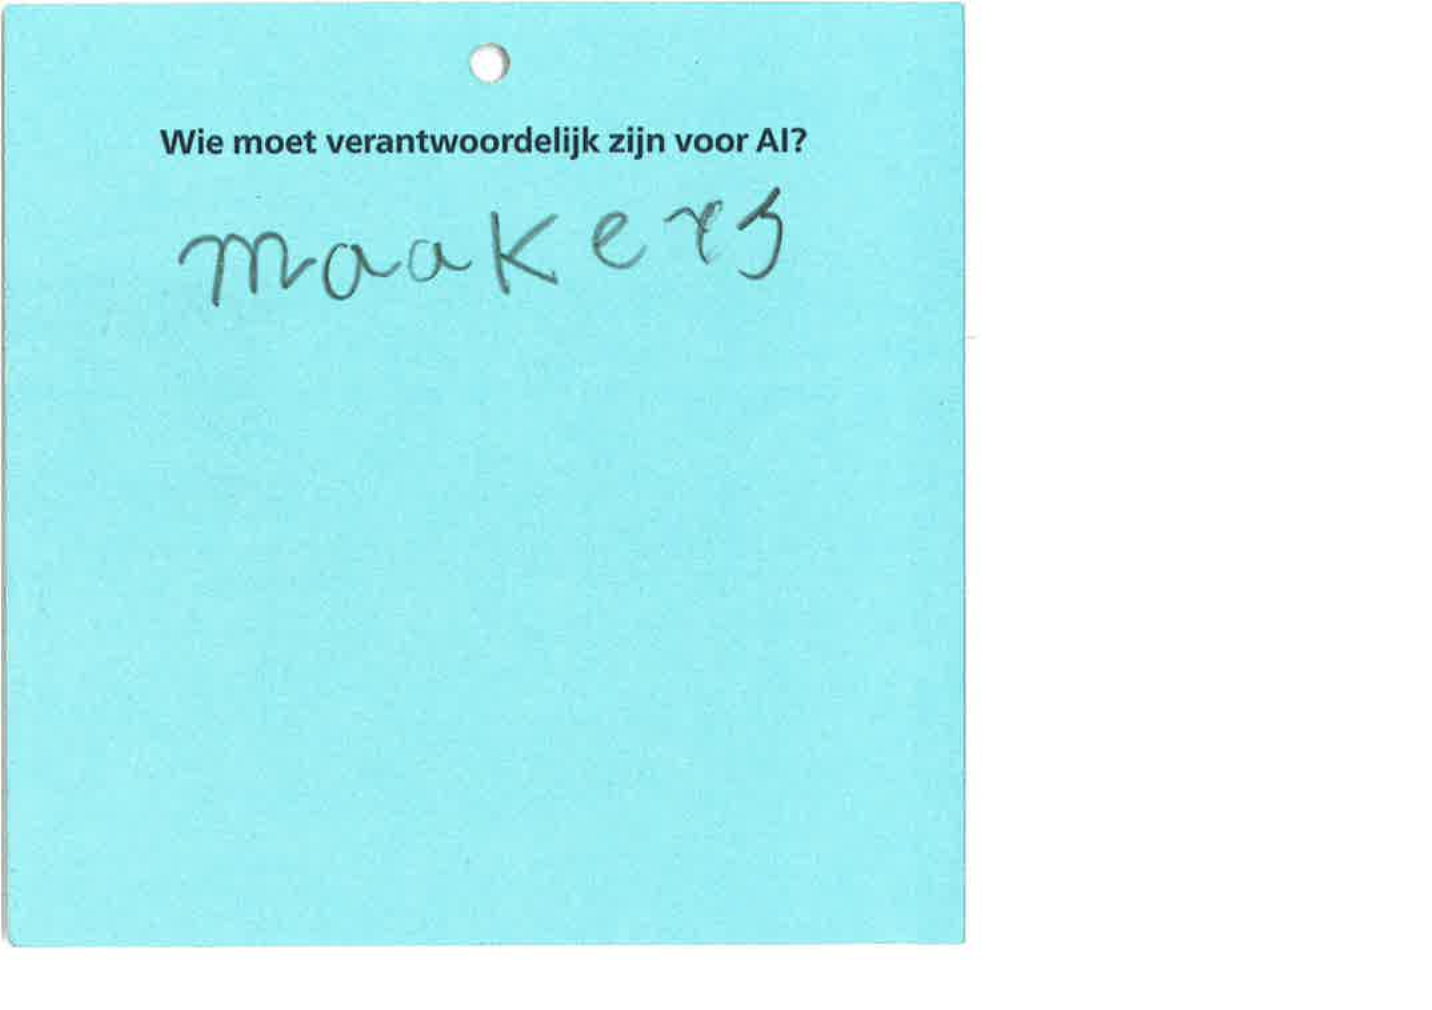 Wie moet verantwoordelijk zijn voor AI?
maakers